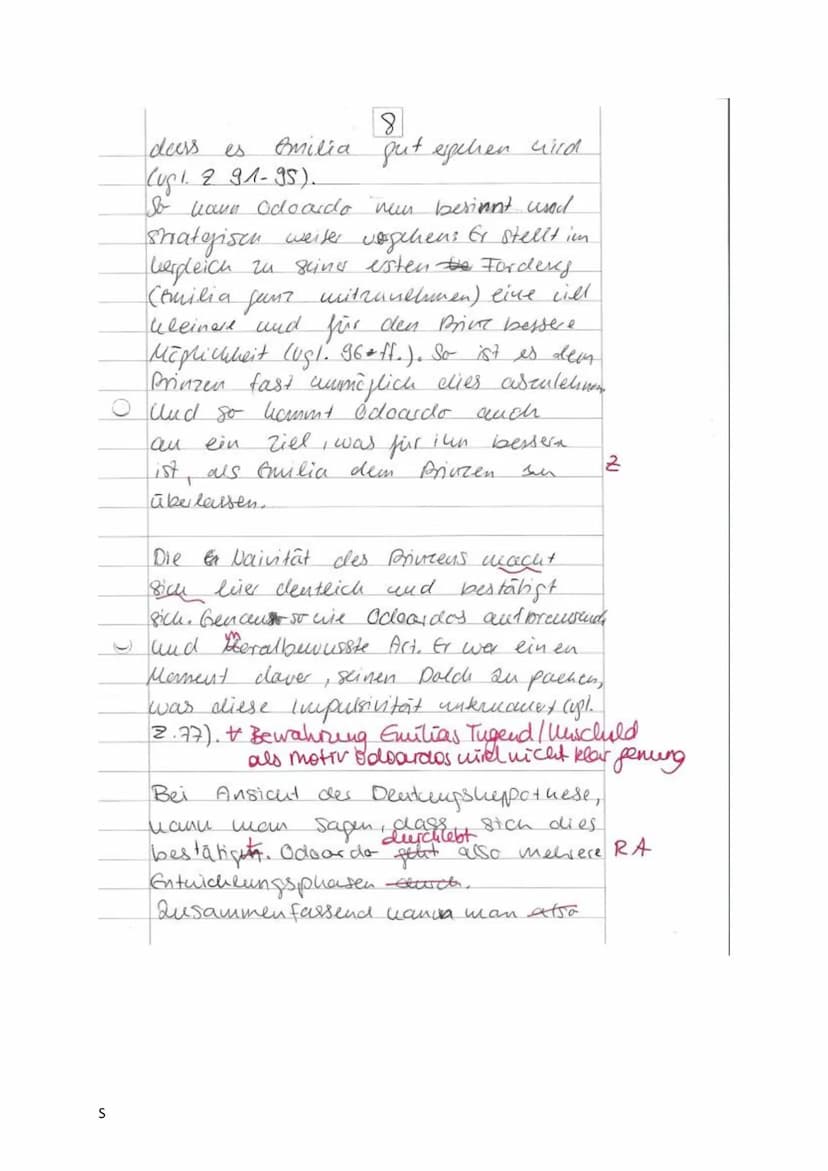 8
dass es Emilia gut ergehen wird
(vgl. Z 91-95).
So kann Odoardo nun besinnt und
strategisch weiter vorgehen: Er stellt im
Vergleich zu seiner ersten Forderung
(Emilia ganz mitzunehmen) eine viel
kleinere und für den Prinz bessere
Möglichkeit (vgl. 96 ff.). So ist es dem
Prinzen fast unmöglich dies abzulehnen
Und so kommt Odoardo auch
an ein Ziel, was für ihn bessern
ist, als Emilia dem Prinzen zu Z
überlassen.
Die Naivität des Prinzens macht
sich hier deutlich und bestätigt
sich. Genau so wie Odoardos aufbrausende
und moralbewusste Art. Er war einen
Moment davor, seinen Dolch zu packen,
was diese Impulsivität untermauert (vgl.
Z.77). + Bewahrung Emilias Tugend/Unschuld
als Motiv Odoardos wird nicht klar genung
Bei Ansicht des Deutungshyppothese,
kann man sagen, dass sich dies
durchlebt
bestätigt. Odoardo geht also mehrere RA
Entwicklungsphasen durch.
Zusammenfassend kann man also
S